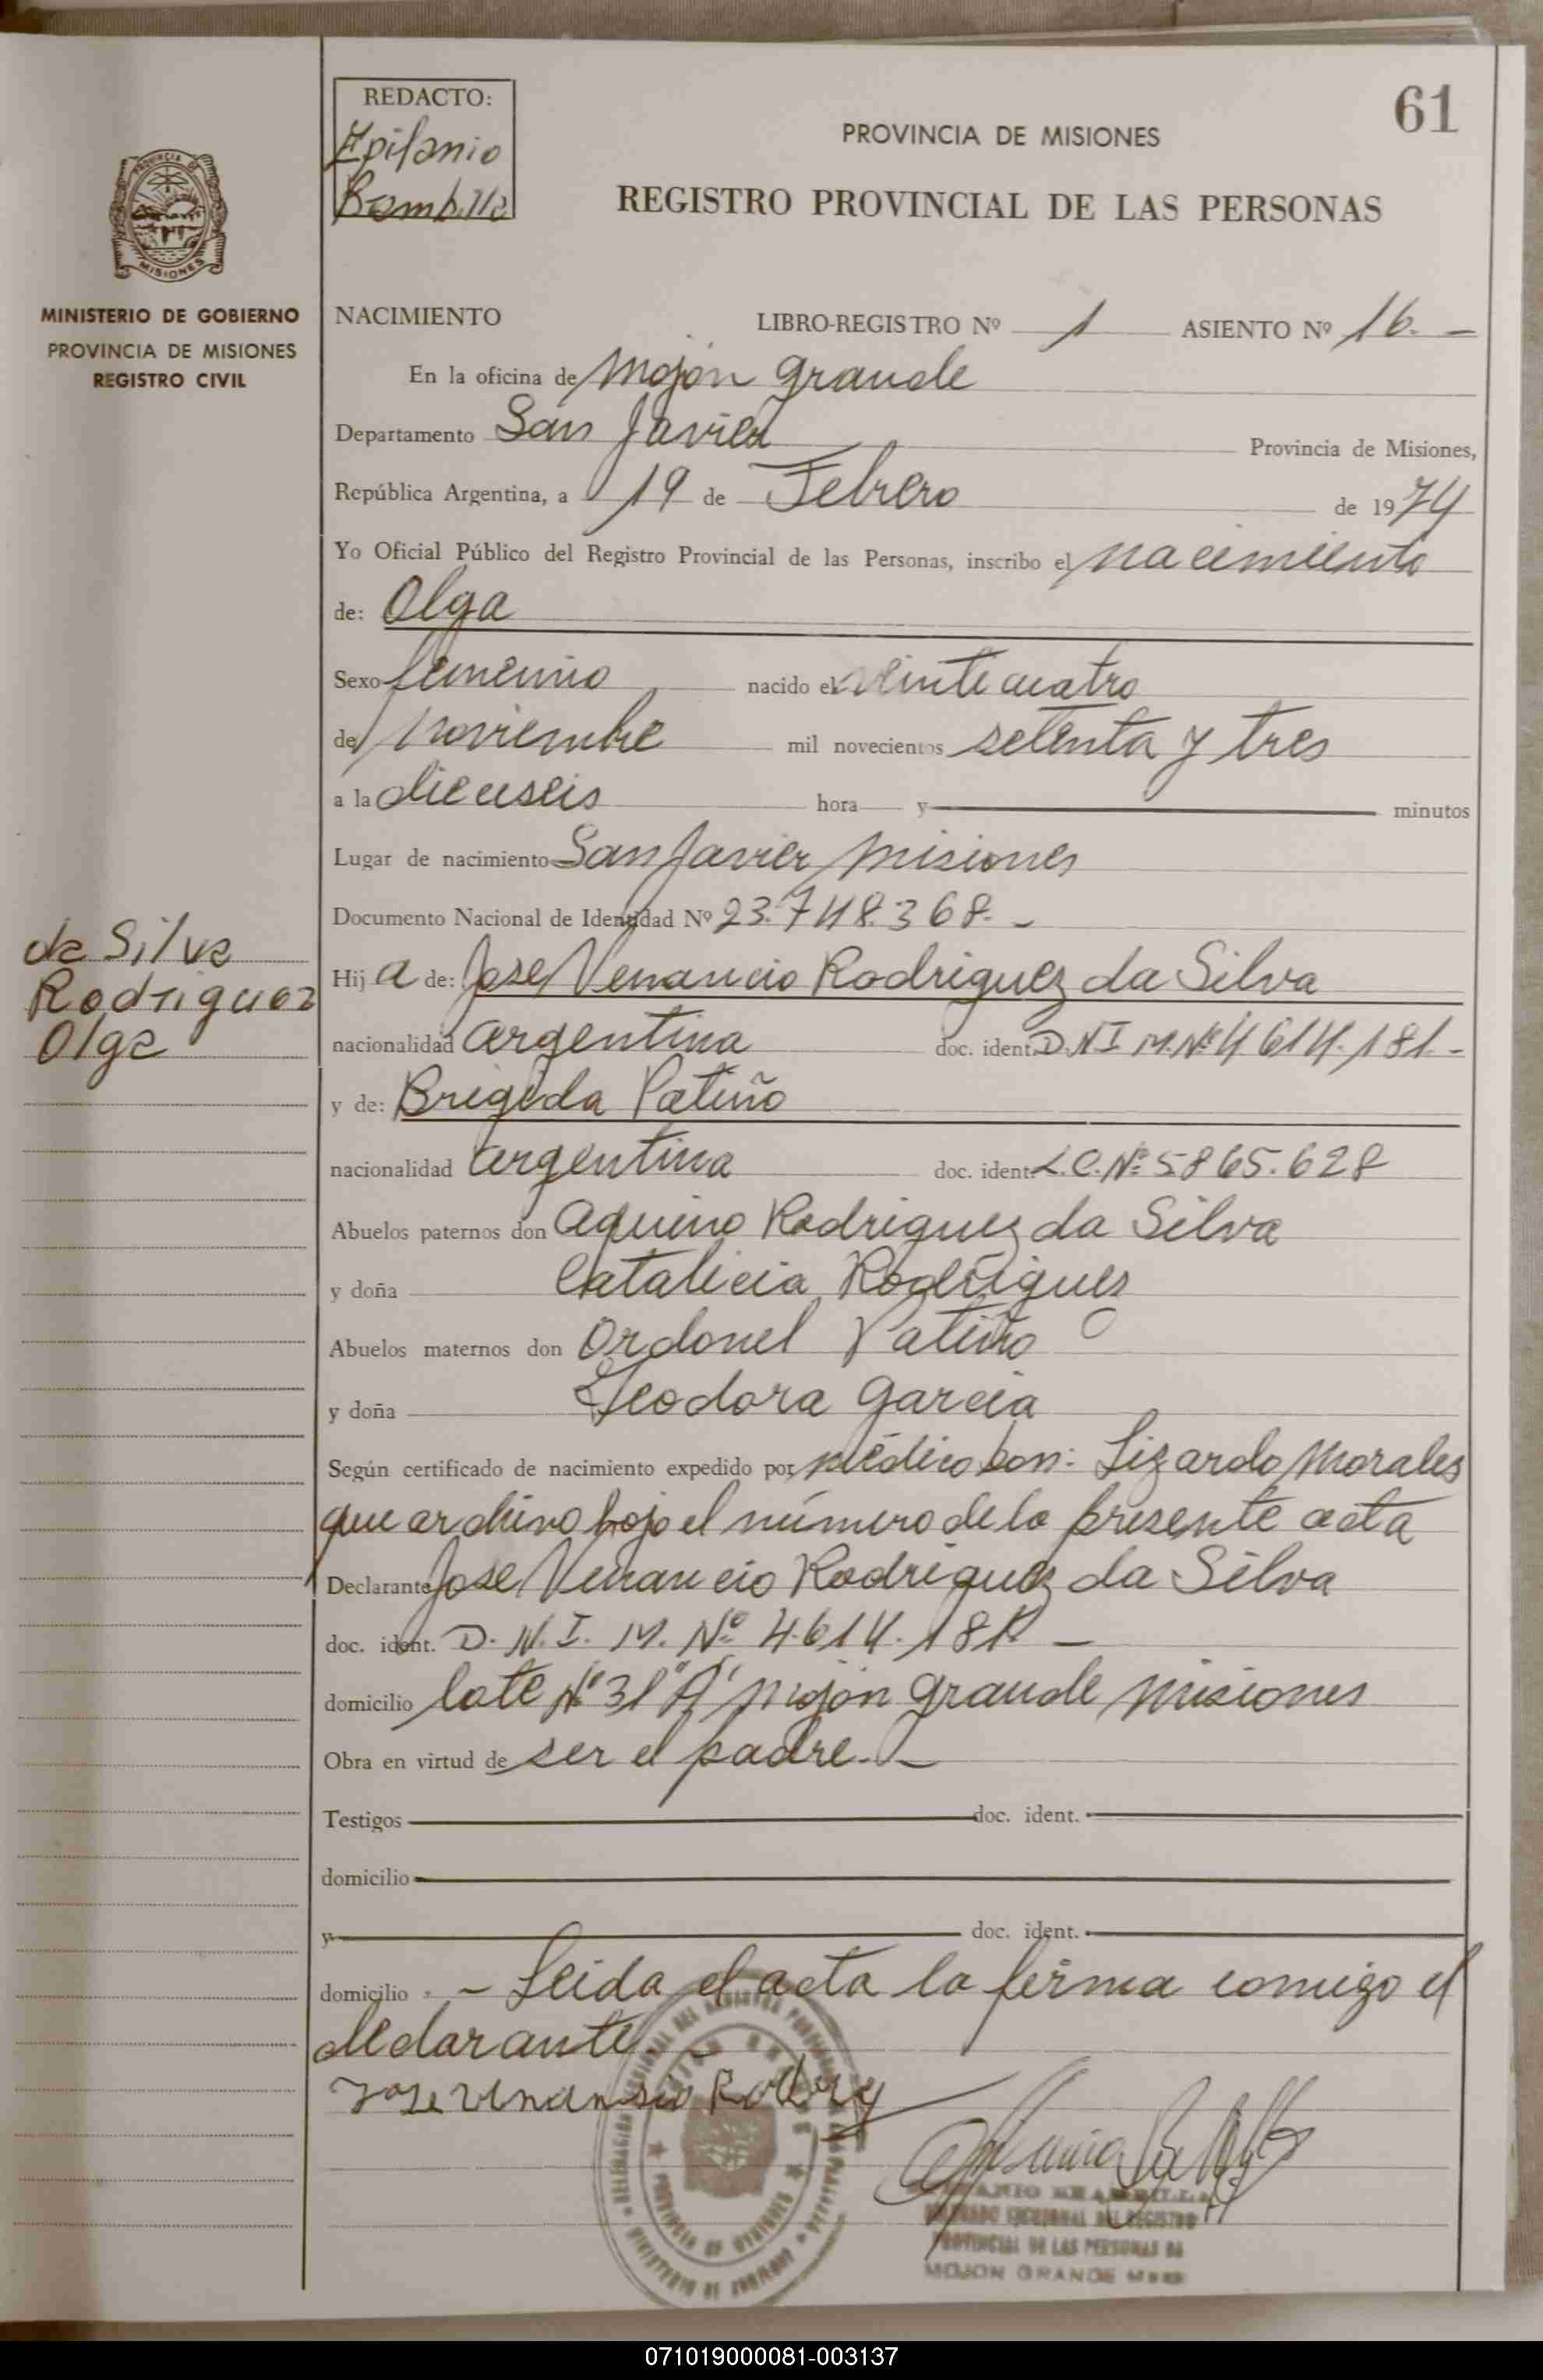 61
REDACTO:
Epifanio
Bambilla
PROVINCIA DE MISIONES
REGISTRO PROVINCIAL DE LAS PERSONAS
PROVINCIA DE
MISIONES
MINISTERIO DE GOBIERNO
PROVINCIA DE MISIONES
REGISTRO CIVIL
NACIMIENTO LIBRO-REGISTRO Nº 1 ASIENTO Nº 16.-
En la oficina de Mojón grande
Departamento San Javier Provincia de Misiones,
República Argentina, a 19 de Febrero de 1974
Yo Oficial Público del Registro Provincial de las Personas, inscribo el nacimiento
de: Olga
Sexo femenino nacido el veinticuatro
de noviembre mil novecientos setenta y tres
a la dieciseis hora y minutos
Lugar de nacimiento San Javier Misiones
Documento Nacional de Identidad Nº 23.748.368.-
da Silva
Rodriguez
Olga
Hija de: Jose Venancio Rodriguez da Silva
nacionalidad argentina doc. ident. D.N I M.Nº 4 614.181.-
y de: Brigida Patiño
nacionalidad argentina doc. ident. L.C.Nº 5865.628
Abuelos paternos don Aquino Rodriguez da Silva
y doña Catalicia Rodriguez
Abuelos maternos don Ordonel Patiño
y doña Teodora Garcia
Según certificado de nacimiento expedido por médico Don: Lizardo Morales
que archivo bajo el número de la presente acta
Declarante Jose Venancio Rodriguez da Silva
doc. ident. D. N. I. M. Nº 4.614.181. -
domicilio lote Nº 31 "A" Mojón grande Misiones
Obra en virtud de ser el padre.-
Testigos doc. ident.
domicilio
y doc. ident.
domicilio - Leida el acta la firma comigo el
declarante. -
Jose Venansio
MOJON GRANDE
PROVINCIAL DE LAS PERSONAS
PROVINCIA DE MISIONES
071019000081-003137